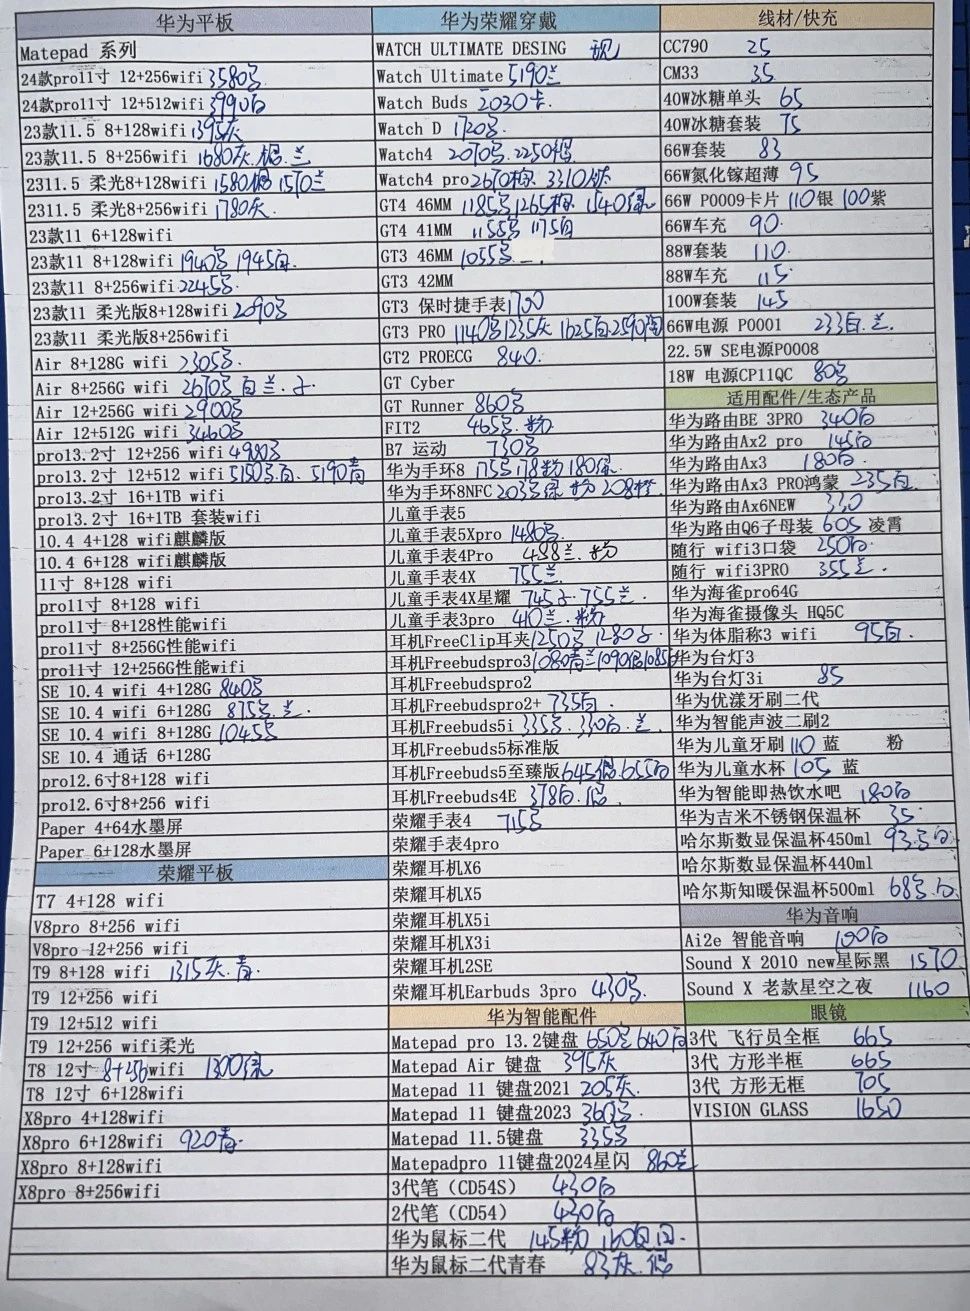 华为平板
Matepad 系列
24款pro11寸 12+256wifi 3580
24款pro11寸 12+512wifi 3990白
23款11.5 8+128wifi 1395灰
23款11.5 8+256wifi 1680灰. 兰
2311.5 柔光8+128wifi 1580 1570兰
2311.5 柔光8+256wifi 1780灰
23款11 6+128wifi
23款11 8+128wifi 1940 1945白.
23款11 8+256wifi 2245
23款11 柔光版8+128wifi 2090
23款11 柔光版8+256wifi
Air 8+128G wifi 2305
Air 8+256G wifi 2670 白兰.
Air 12+256G wifi 2900
Air 12+512G wifi 3460
pro13.2寸 12+256 wifi 4980
pro13.2寸 12+512 wifi 5150 白. 5190青
pro13.2寸 16+1TB wifi
pro13.2寸 16+1TB 套装wifi
10.4 4+128 wifi麒麟版
10.4 6+128 wifi麒麟版
11寸 8+128 wifi
pro11寸 8+128 wifi
pro11寸 8+128性能wifi
pro11寸 8+256G性能wifi
pro11寸 12+256G性能wifi
SE 10.4 wifi 4+128G 840
SE 10.4 wifi 6+128G 875 兰.
SE 10.4 wifi 8+128G 1045
SE 10.4 通话 6+128G
pro12.6寸8+128 wifi
pro12.6寸8+256 wifi
Paper 4+64水墨屏
Paper 6+128水墨屏
荣耀平板
T7 4+128 wifi
V8pro 8+256 wifi
V8pro 12+256 wifi
T9 8+128 wifi 1315灰.青.
T9 12+256 wifi
T9 12+512 wifi
T9 12+256 wifi柔光
T8 12寸 8+256wifi 1300绿
T8 12寸 6+128wifi
X8pro 4+128wifi
X8pro 6+128wifi 920青.
X8pro 8+128wifi
X8pro 8+256wifi
华为荣耀穿戴
WATCH ULTIMATE DESING 现
Watch Ultimate 5190兰
Watch Buds 2030卡.
Watch D 1720
Watch4 2070 2250
Watch4 pro 2670 3310
GT4 46MM 1185 1265 1540绿
GT4 41MM 1155 1175白
GT3 46MM 1055
GT3 42MM
GT3 保时捷手表 1700
GT3 PRO 1140 1235灰 1625白 2590陶
GT2 PROECG 840.
GT Cyber
GT Runner 860
FIT2 465 粉
B7 运动 730
华为手环8 175 178粉 180绿.
华为手环8NFC 203 绿 粉 208橙.
儿童手表5
儿童手表5Xpro 1480
儿童手表4Pro 488兰.粉
儿童手表4X 755兰.
儿童手表4X星耀 745 755兰.
儿童手表3pro 410兰.粉
耳机FreeClip耳夹 1250 1280
耳机Freebudspro3 1080青兰1090银1085
耳机Freebudspro2
耳机Freebudspro2+ 735白.
耳机Freebuds5i 335 330白.兰.
耳机Freebuds5标准版
耳机Freebuds5至臻版 645银.655白
耳机Freebuds4E 378白.银.
荣耀手表4 715
荣耀手表4pro
荣耀耳机X6
荣耀耳机X5
荣耀耳机X5i
荣耀耳机X3i
荣耀耳机2SE
荣耀耳机Earbuds 3pro 430
华为智能配件
Matepad pro 13.2键盘 650 640白
Matepad Air 键盘 395灰
Matepad 11 键盘2021 205灰.
Matepad 11 键盘2023 360
Matepad 11.5键盘 335
Matepadpro 11键盘2024星闪 860兰
3代笔（CD54S） 430白
2代笔（CD54） 430白
华为鼠标二代 145粉 160
华为鼠标二代青春 83灰.银
线材/快充
CC790 25
CM33 35
40W冰糖单头 65
40W冰糖套装 75
66W套装 83
66W氮化镓超薄 95
66W P0009卡片 110银 100紫
66W车充 90.
88W套装 110.
88W车充 115
100W套装 145
66W电源 P0001 233白.兰.
22.5W SE电源P0008
18W 电源CP11QC 80
适用配件/生态产品
华为路由BE 3PRO 340白
华为路由Ax2 pro 145白
华为路由Ax3 180白.
华为路由Ax3 PRO鸿蒙 235白
华为路由Ax6NEW 330
华为路由Q6子母装 605 凌霄
随行 wifi3口袋 250白.
随行 wifi3PRO 355兰.
华为海雀pro64G
华为海雀摄像头 HQ5C
华为体脂称3 wifi 95白.
华为台灯3
华为台灯3i 85
华为优漾牙刷二代
华为智能声波二刷2
华为儿童牙刷 110 蓝 粉
华为儿童水杯 105 蓝
华为智能即热饮水吧 180白
华为吉米不锈钢保温杯 35
哈尔斯数显保温杯450ml 93 白
哈尔斯数显保温杯440ml
哈尔斯知暖保温杯500ml 68 白
华为音响
Ai2e 智能音响 100白
Sound X 2010 new星际黑 1570
Sound X 老款星空之夜 1160
眼镜
3代 飞行员全框 665
3代 方形半框 665
3代 方形无框 705
VISION GLASS 1650